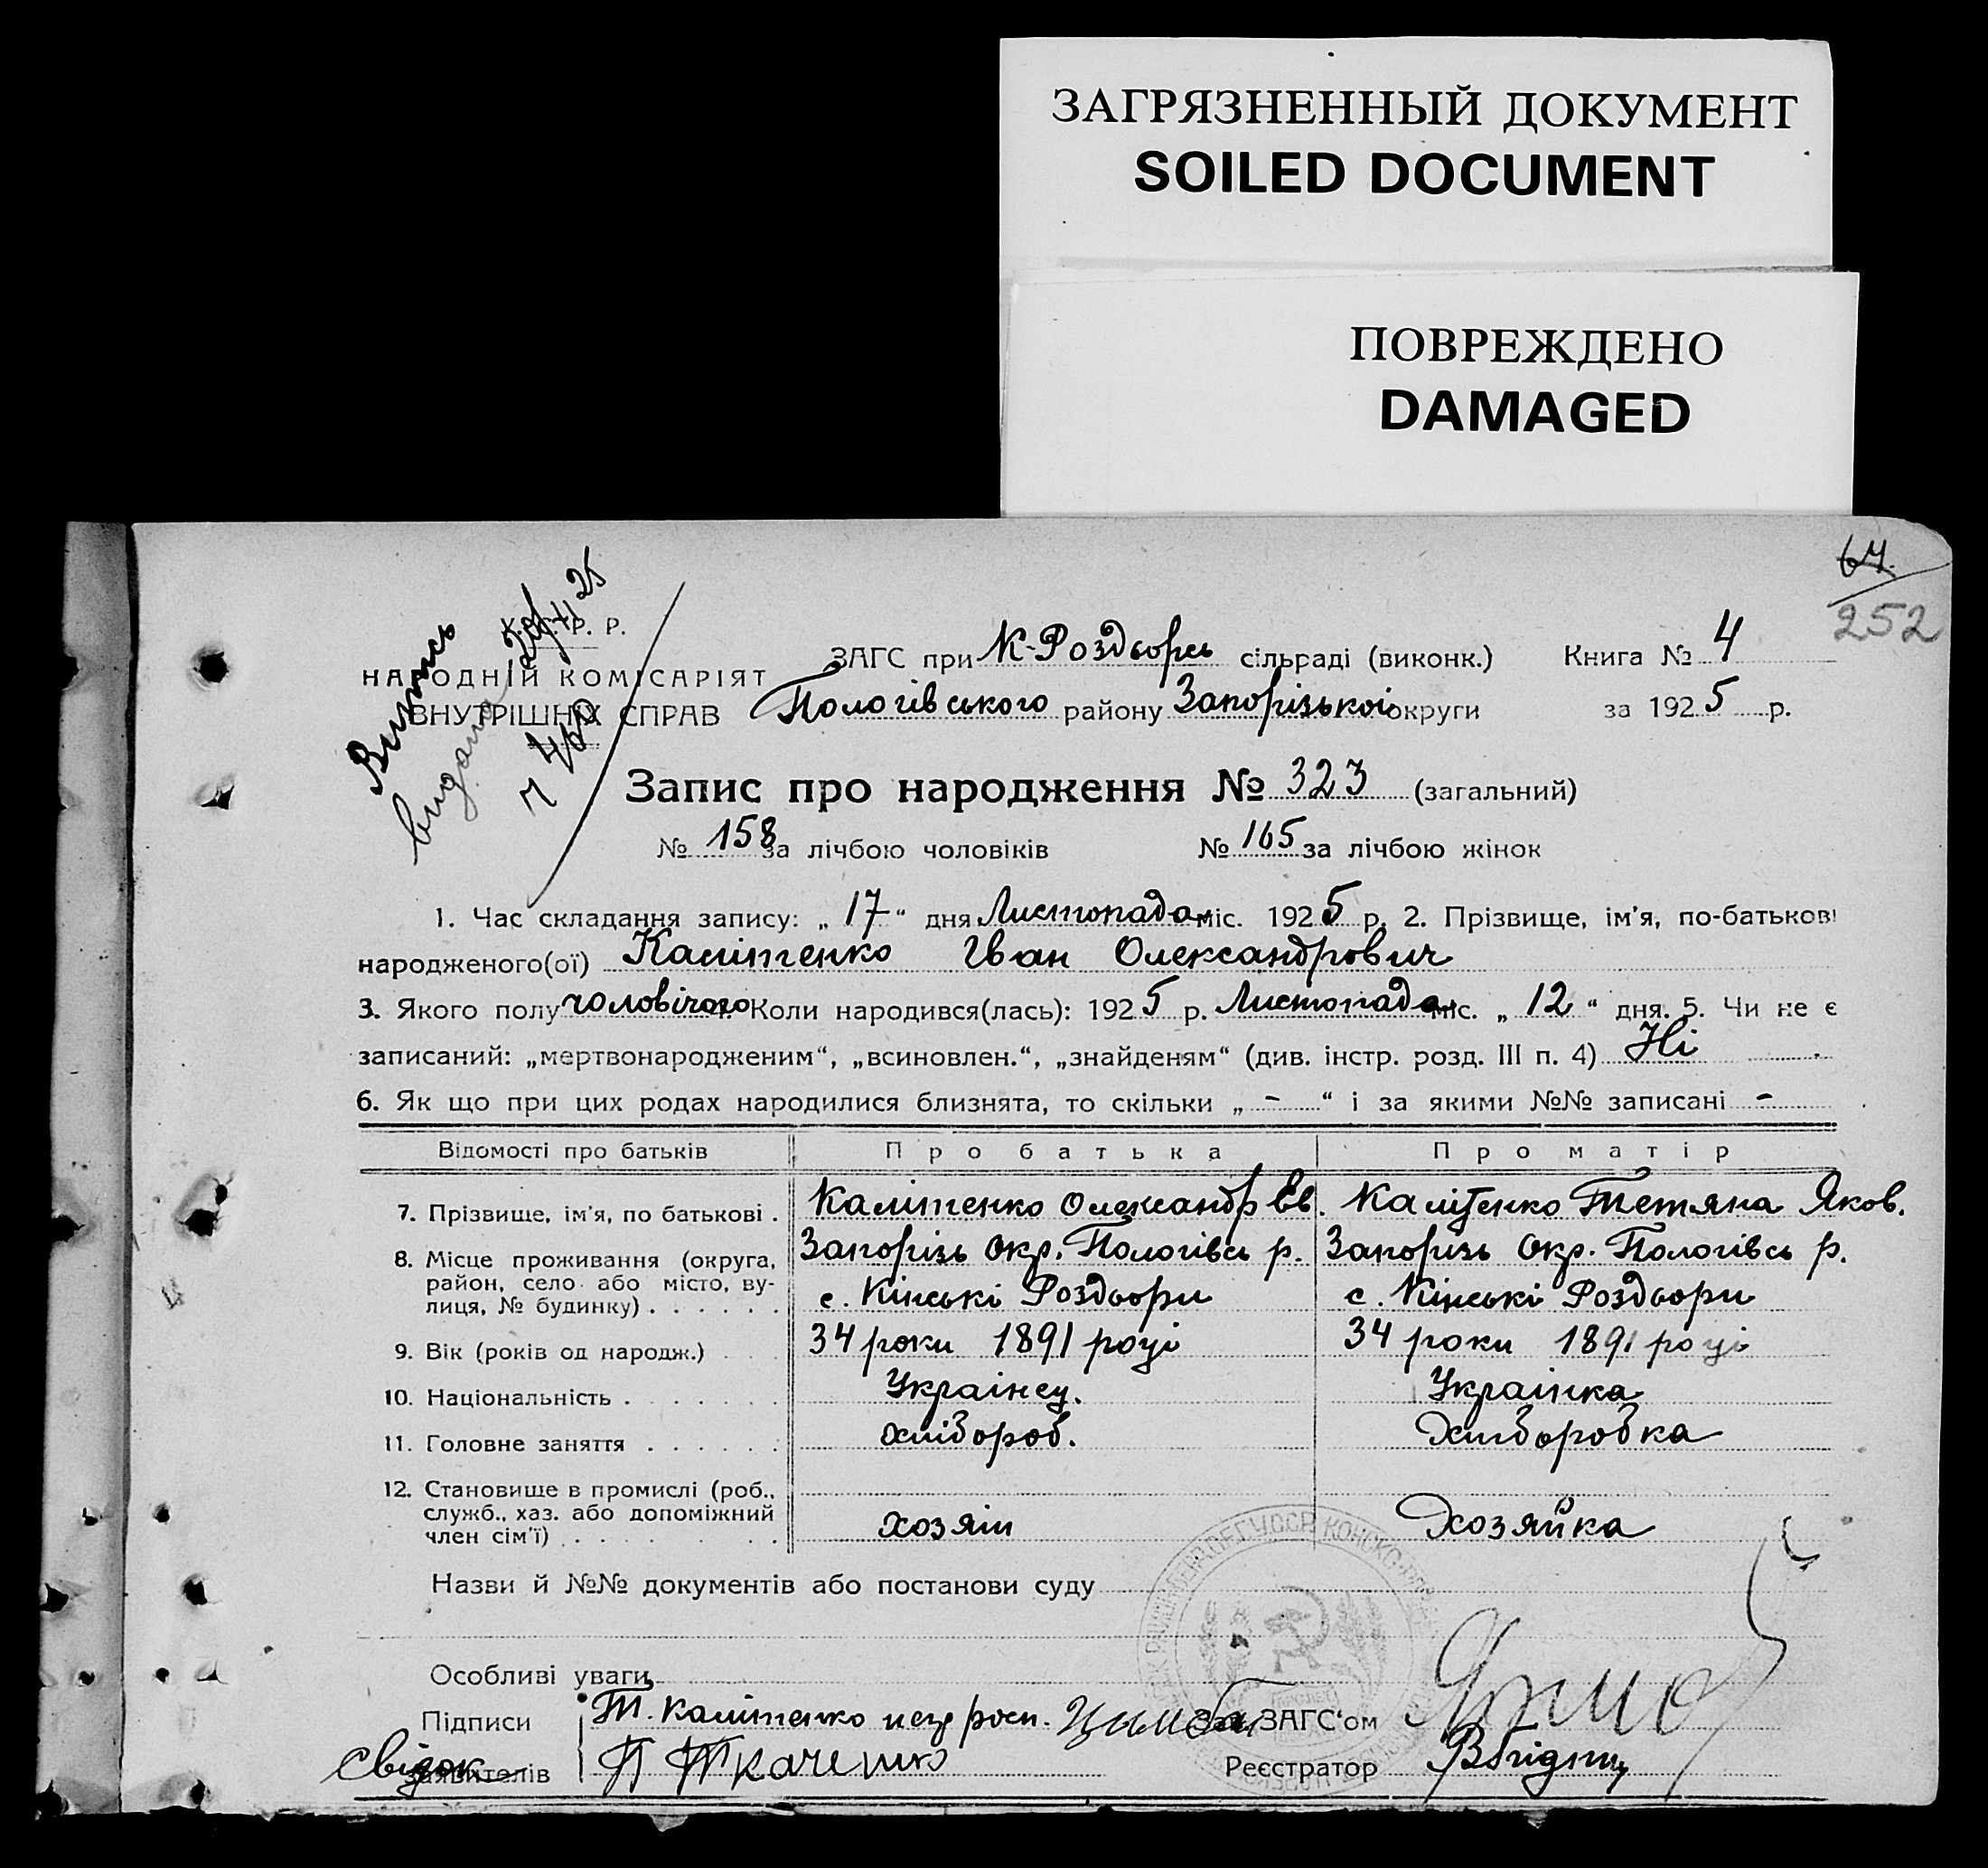 ЗАГРЯЗНЕННЫЙ ДОКУМЕНТ
SOILED DOCUMENT
ПОВРЕЖДЕНО
DAMAGED
64
252
Витяг
видано
У. С. Р. Р.
НАРОДНІЙ КОМІСАРІЯТ
ВНУТРІШНІХ СПРАВ
ЗАГС при К-Роздорсь сільраді (виконк.) Книга № 4
Пологівського району Запорізької округи за 1925 р.
Запис про народження № 323 (загальний)
№ 158 за лічбою чоловіків № 165 за лічбою жінок
1. Час складання запису: „17“ дня Листопада міс. 1925 р. 2. Прізвище, ім'я, по-батькові
народженого(ої) Калітенко Іван Олександрович
3. Якого полу чоловічого 4. Коли народився(лась): 1925 р. Листопада міс. „12“ дня. 5. Чи не є
записаний: „мертвонародженим“, „всиновлен.“, „знайденям“ (див. інстр. розд. III п. 4) Ні
6. Як що при цих родах народилися близнята, то скільки „ - “ і за якими №№ записані -
Відомості про батьків Про батька Про матір
7. Прізвище, ім'я, по батькові . Калітенко Олександр Єв. Калітенко Тетяна Яков.
8. Місце проживання (округа, Запорізь Окр. Пологівсь р. Запорізь Окр. Пологівсь р.
район, село або місто, ву-
лиця, № будинку) . . . . . . с. Кінські Роздори с. Кінські Роздори
9. Вік (років од народж.) . . . 34 роки 1891 році 34 роки 1891 році
10. Національність . . . . . . . Українец. Українка
11. Головне заняття . . . . . . хлібороб. Хліборобка
12. Становище в промислі (роб.,
служб., хаз. або допоміжний
член сім'ї) . . . . . . . . хозяїн Хозяйка
Назви й №№ документів або постанови суду
Особливі уваги
Підписи Т. Калітенко Зав. ЗАГС'ом
свідок заявителів П Ткаченко Реєстратор